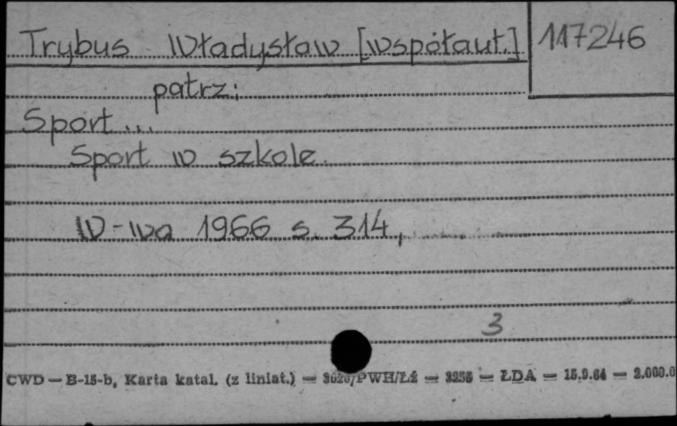 Trybus Władysław [współaut.] 117246
patrz:
Sport...
Sport w szkole.
W-wa 1966 s. 314,
3
CWD — B-15-b, Karta katal. (z liniat.) — /PWH/Łź — — ŁDA — 15.9.64 — 2.000.0